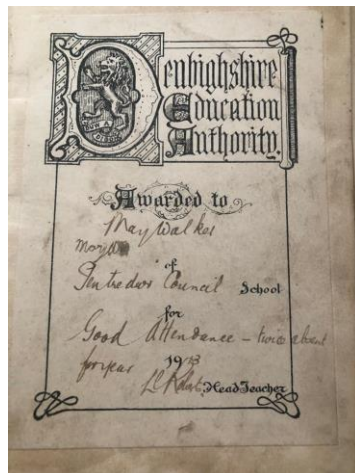 Denbighshire
Education
Authority.
Awarded to
May Walker
of
Pentredwr Council School
for
Good Attendance - twice absent
for year 1913
Head Teacher